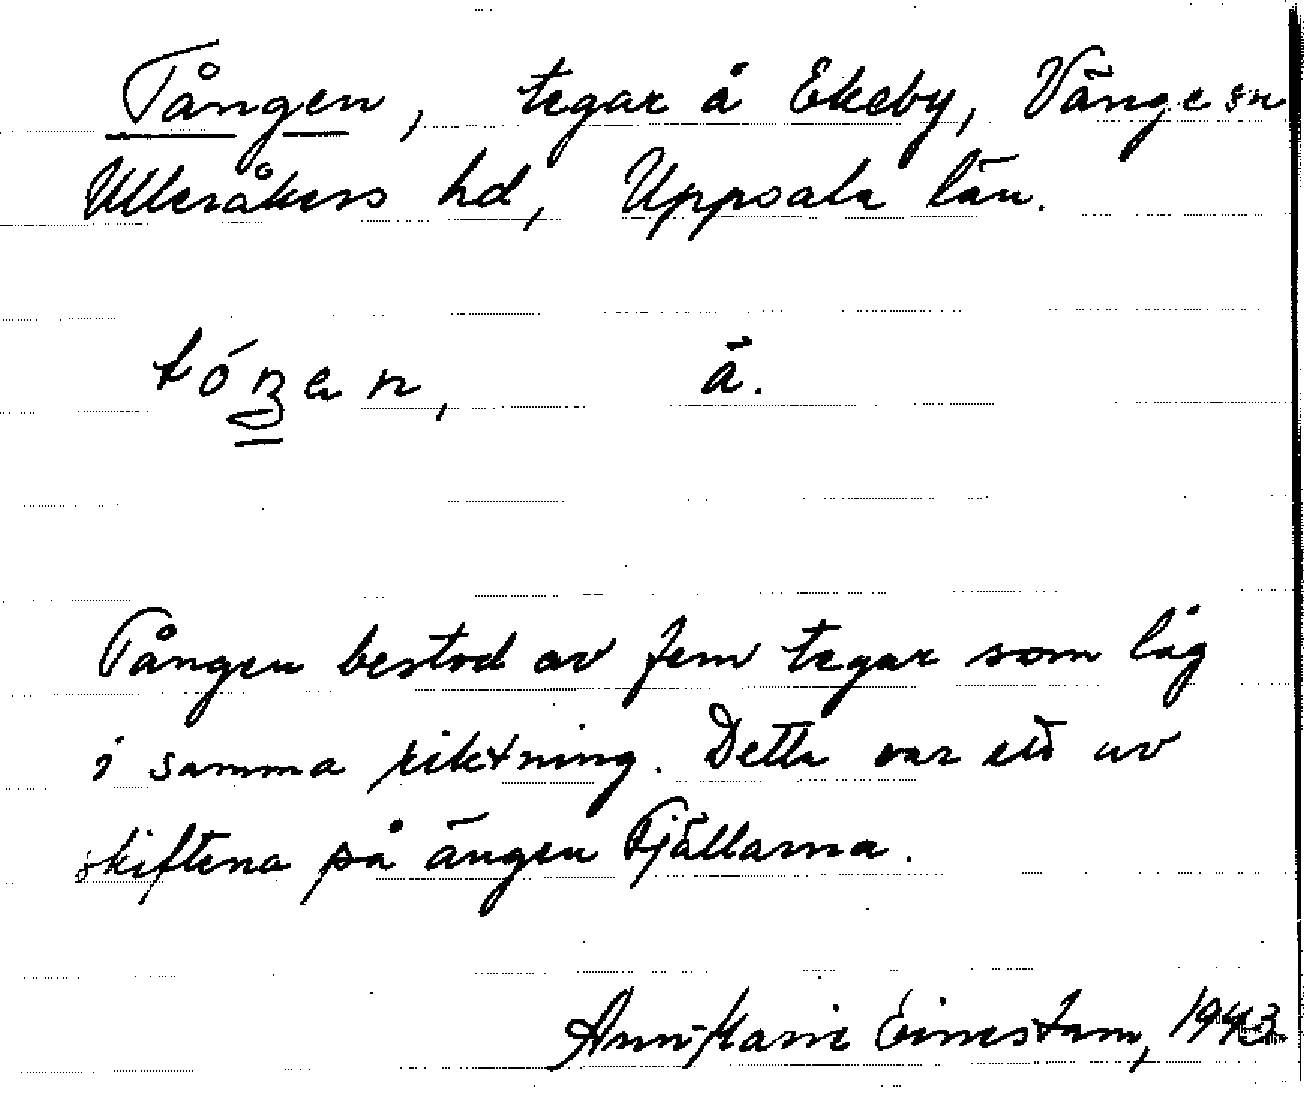 Tången, tegar å Ekeby, Vänge sn
Ulleråkers hd, Uppsala län.
tóŋen, ā.
Tången bestod av fem tegar som låg
i samma riktning. Detta var ett av
skiftena på ängen Fjällarna.
Ann-Marie Einestam, 1943.